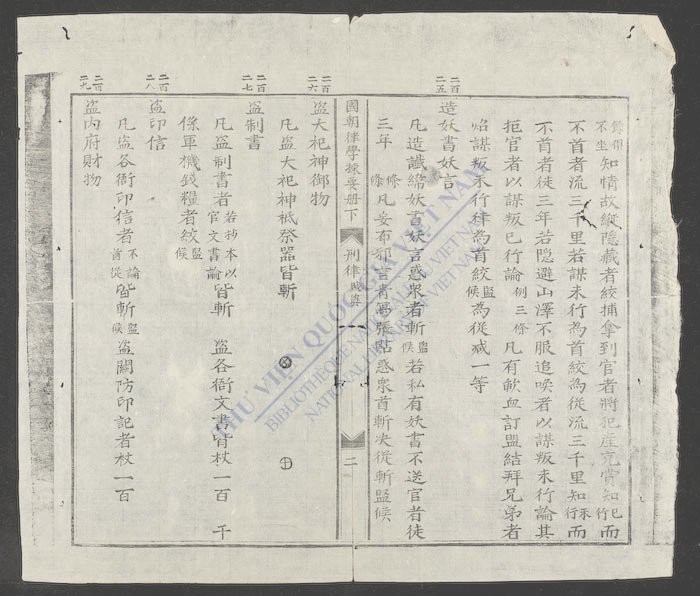 不坐知情故縱隱藏者絞捕拿到官者將犯産充賞知已行而
不首者流三千里若謀未行為首絞為從流三千里知未行而
不首者徒三年若隱避山澤不服追喚者以謀叛未行論其
拒官者以謀叛已行論例三條凡有歃血訂盟結拜兄弟者
焰謀叛未行律為首絞監候為從减一等
二百二五
造妖書妖言
凡造讖緯妖書妖言惑衆者斬監候若私有妖書不送官者徒
三年條凡妄布邪言書寫張貼惑衆首斬决從斬監候
國朝律學揀要册下 刑律賊盗 二
二百二六
盗大祀神御物
凡盗大祀神祗祭器皆斬
二百二七
盗制書
凡盗制書者若抄本以官文書論皆斬 盗各衙文書皆杖一百 干
係軍機錢糧者絞監候
二百二八
盗印信
凡盗各衙印信者不論首從皆斬監候 盗關防印記者杖一百
二百二九
盗内府財物
THƯ VIỆN QUỐC GIA VIỆT NAM
BIBLIOTHÈQUE NATIONALE DU VIETNAM
NATIONAL LIBRARY OF VIETNAM